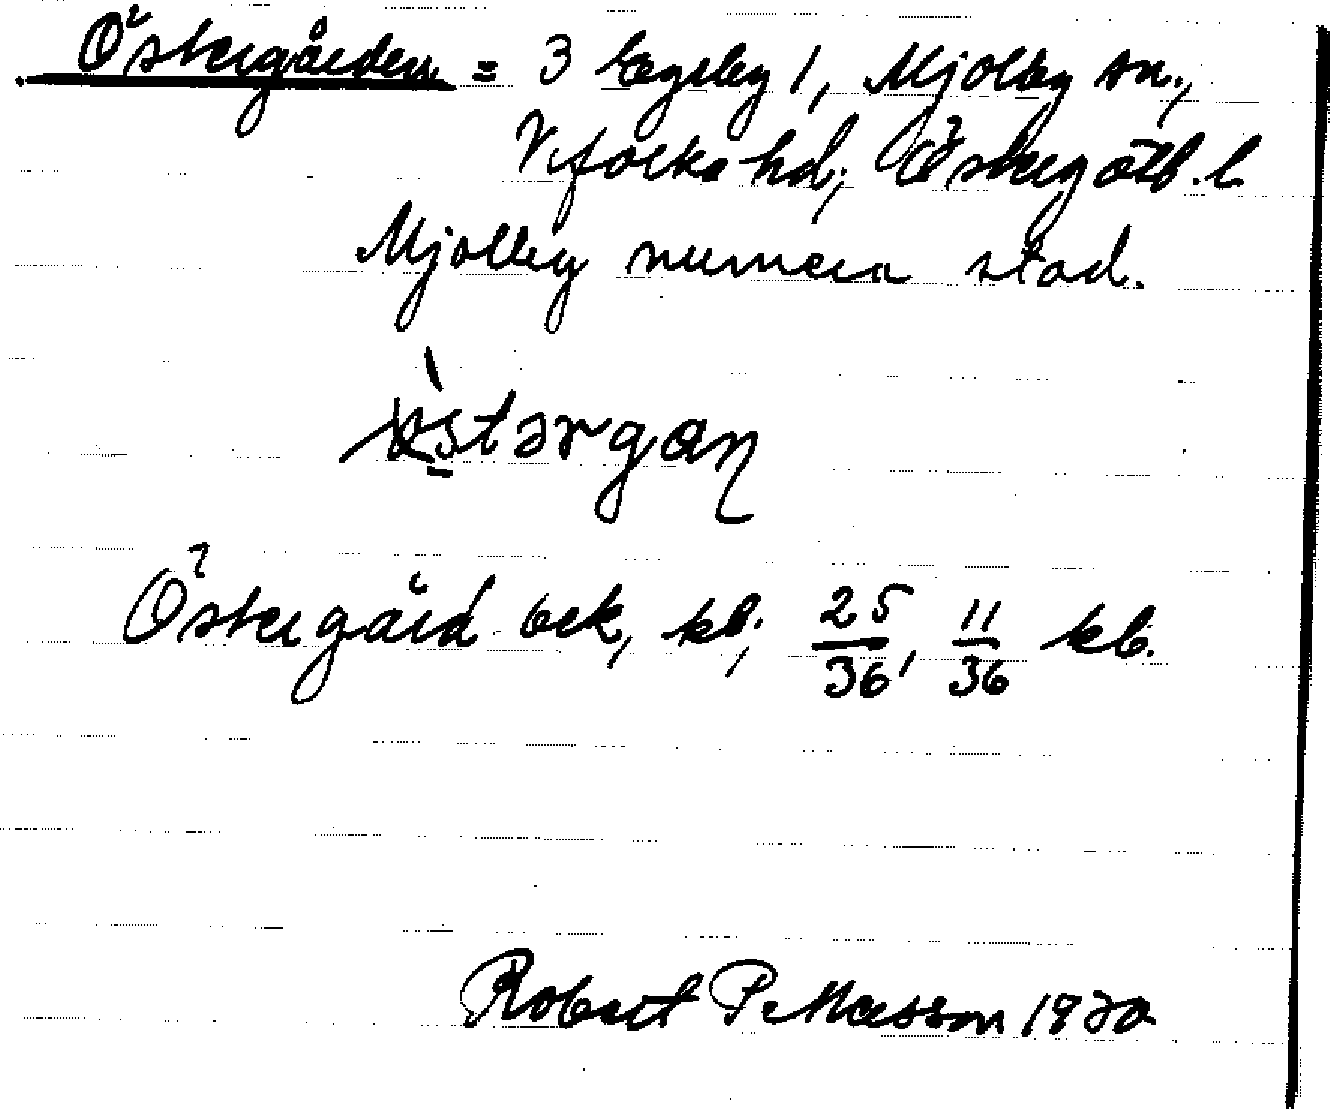 Östergården = 3 Egeby 1, Mjölby sn.,
Vifolka hd., Östergötl. l
Mjölby numera stad.
östərgaɳ
Östergård ek, kb., 25/36, 11/36 kb.
Robert P:Mattsson 1930